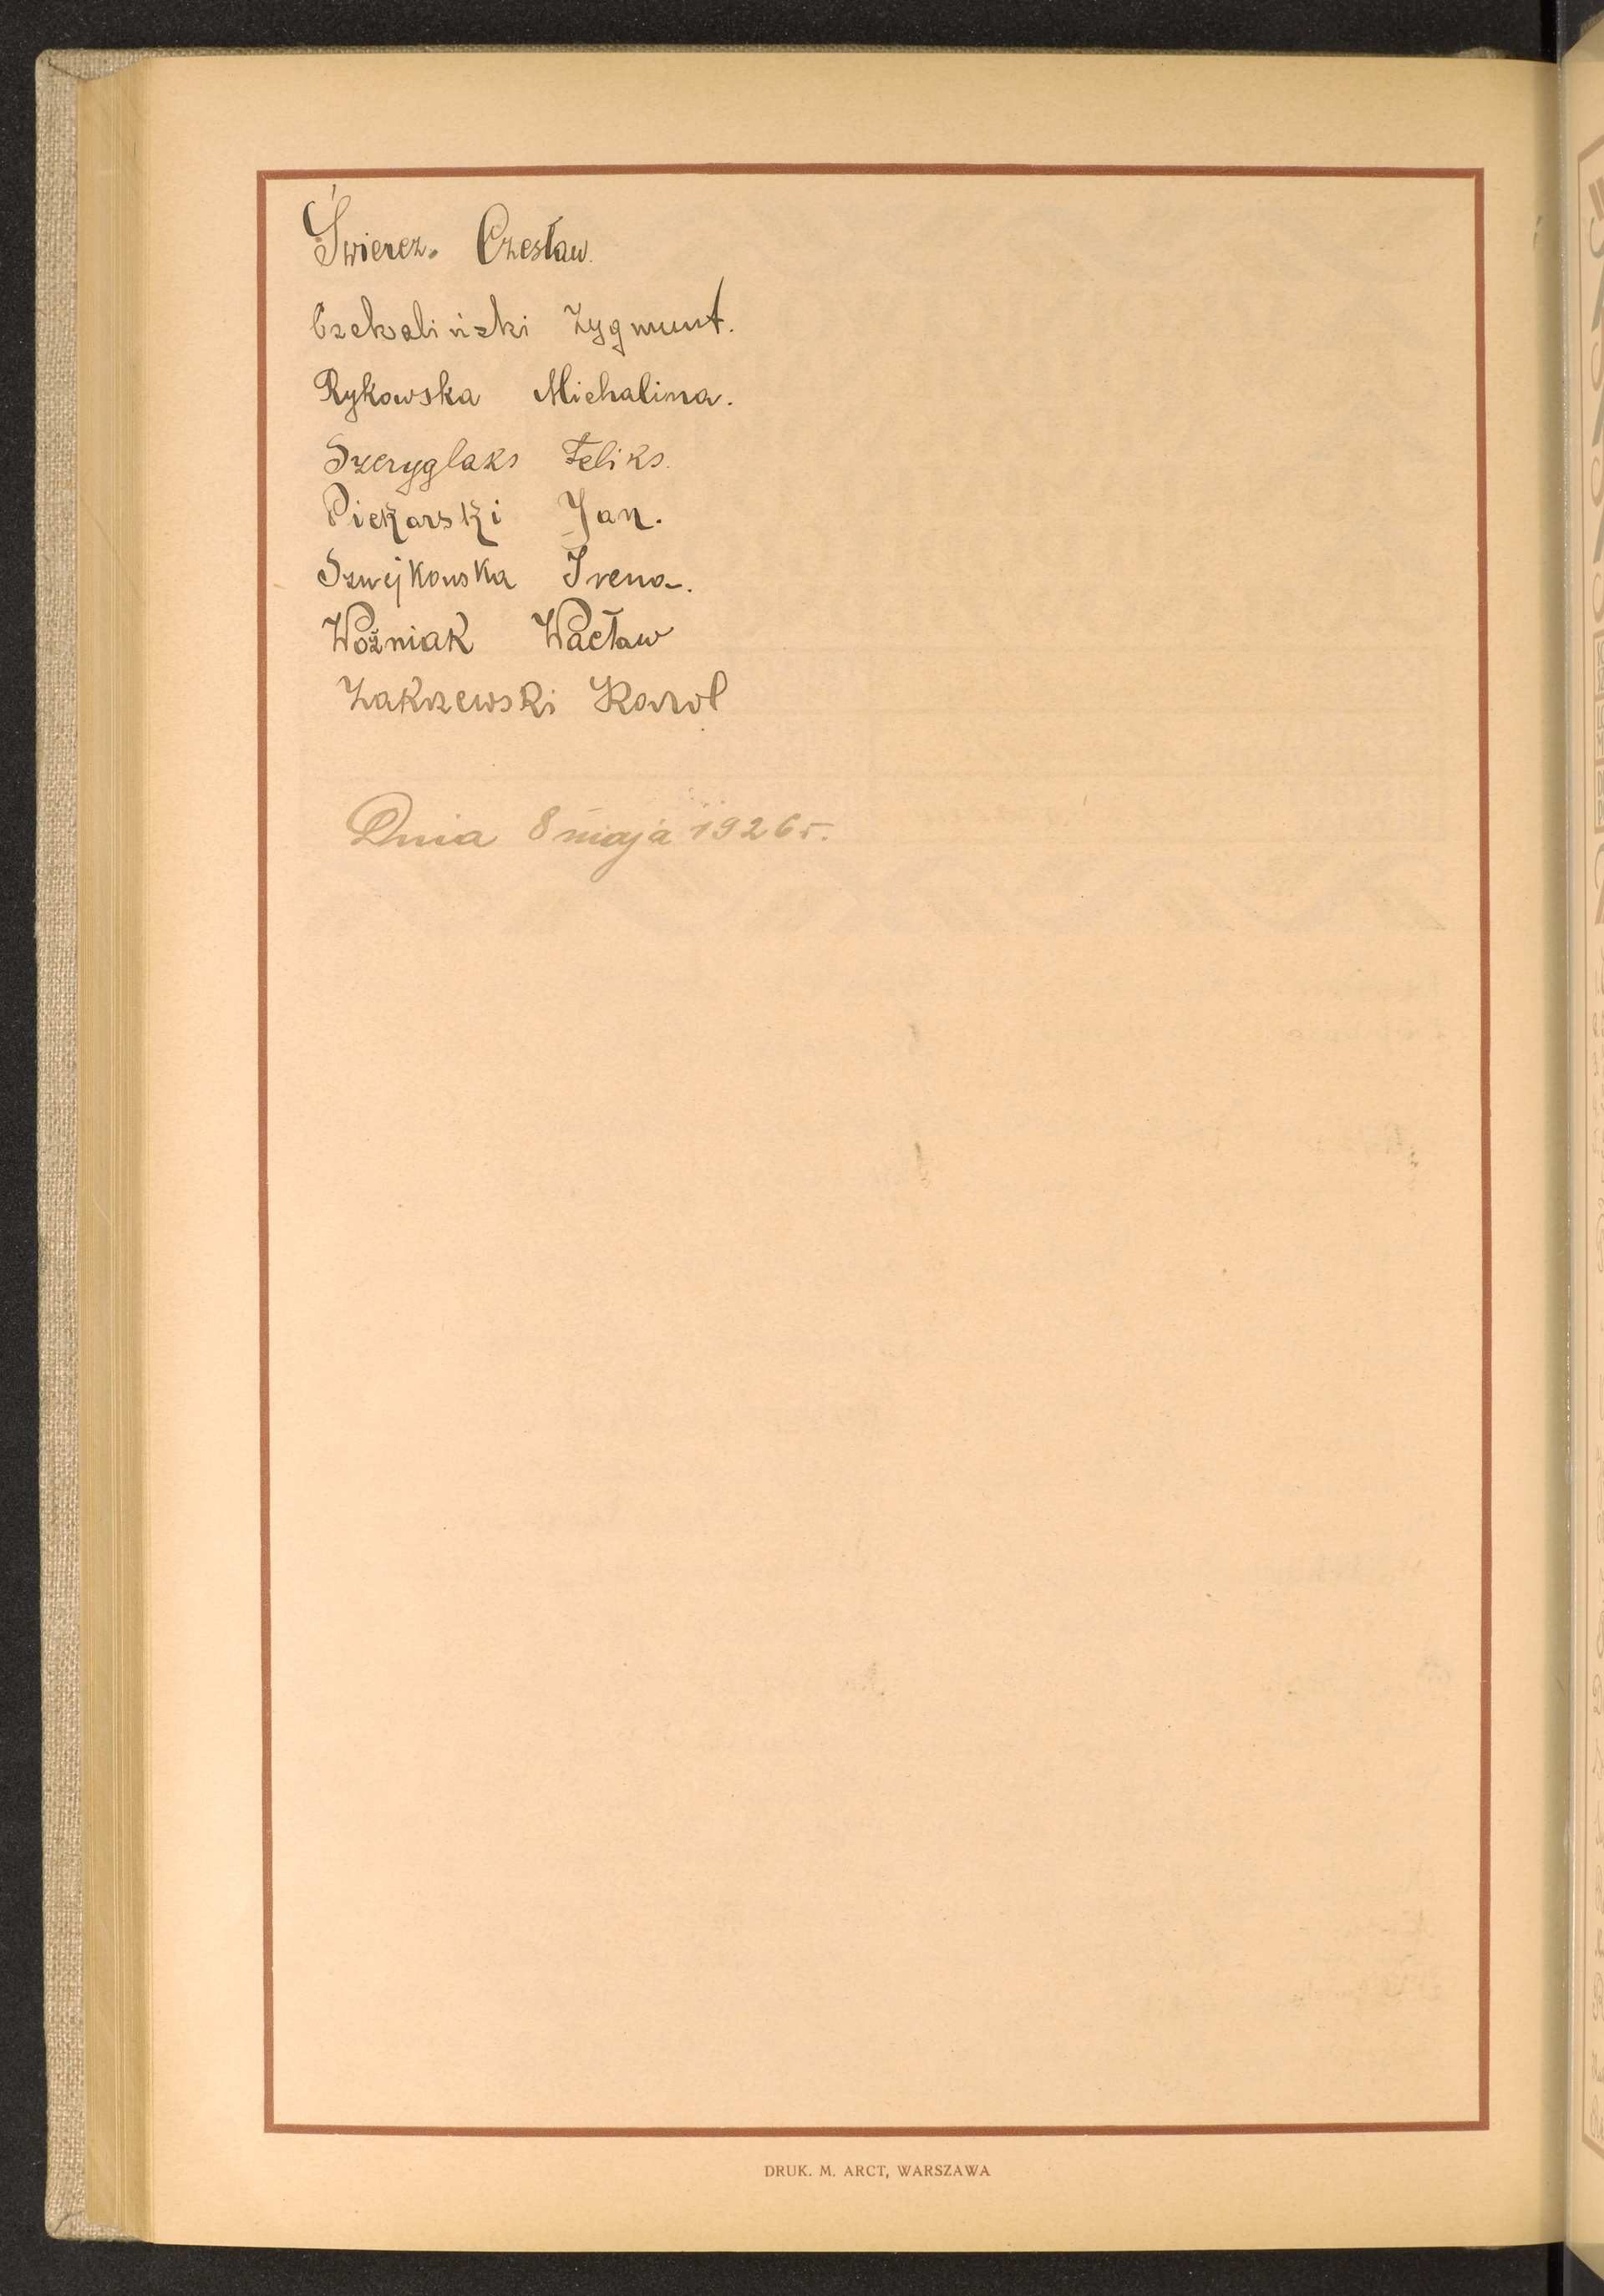 Świercz. Czesław.
Czekaliński Zygmunt.
Rykowska Michalina.
Szeryglaks Feliks.
Piekarski Jan.
Szwejkowska Irena.
Woźniak Wacław
Zakrzewski Karol
Dnia 8 maja 1926 r.
DRUK. M. ARCT, WARSZAWA